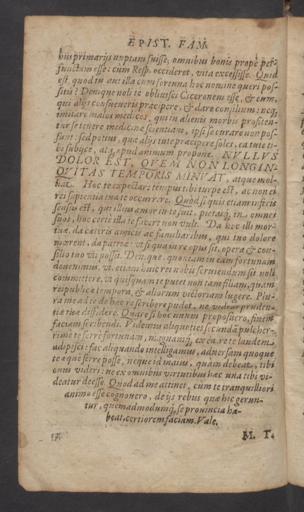 EPIST. FAM.
bus primarijs nuptam fuisse: omnibus bonis propè per-
functam esse: cum Resp. occideret, vita excessisse. Quid
est, quod tu aut illa cum fortuna hoc nomine queri pos-
sitis? Denique noli te obliuisci Ciceronem esse, & eum,
qui alijs consueueris præcipere, & dare consilium: neq;
imitare malos medicos, qui in alienis morbis profiten-
tur se tenere medicinæ scientiam, ipsi se curare non pos-
sunt: sed potius, quæ alijs tute præcipere soles, ea tute ti-
bi subijce, atq; apud animum propone. NVLLVS
DOLOR EST, QVEM NON LONGIN-
QVITAS TEMPORIS MINVAT, atque mol-
liat. Hoc te expectare tempus, tibi turpe est, ac non ei
rei sapientia tua te occurrere. Quod si quis etiam inferis
sensus est, qui illius amor in te fuit, pietasq; in omnes
suos, hoc certè illa te facere non vult. Da hoc illi mor-
tuæ, da cæteris amicis ac familiaribus, qui tuo dolore
mœrent, da patriæ: vt si qua in re opus sit, opera & con-
silio tuo vti possit. Denique quoniam in eam fortunam
deuenimus, vt etiam huic rei nobis seruiendum sit: noli
committere, vt quisquam te putet non tam filiam, quàm
reipublicæ tempora, & aliorum victoriam lugere. Plu-
ra me ad te de hac re scribere pudet, ne videar pruden-
tiæ tuæ diffidere. Quare si hoc vnum proposuero, finem
faciam scribendi. Vidimus aliquoties secundam pulcher-
rimè te ferre fortunam, magnamq; ex ea re te laudem
adipisci: fac aliquando intelligamus, aduersam quoque
te æquè ferre posse, neque id maius, quàm debeat, tibi
onus videri: ne ex omnibus virtutibus hæc vna tibi vi-
deatur deesse. Quod ad me attinet, cum te tranquilliori
animo esse cognonero, de ijs rebus quæ hic gerun-
tur, quemadmodumq; se prouincia ha-
beat, certiorem faciam. Vale.
M. T.